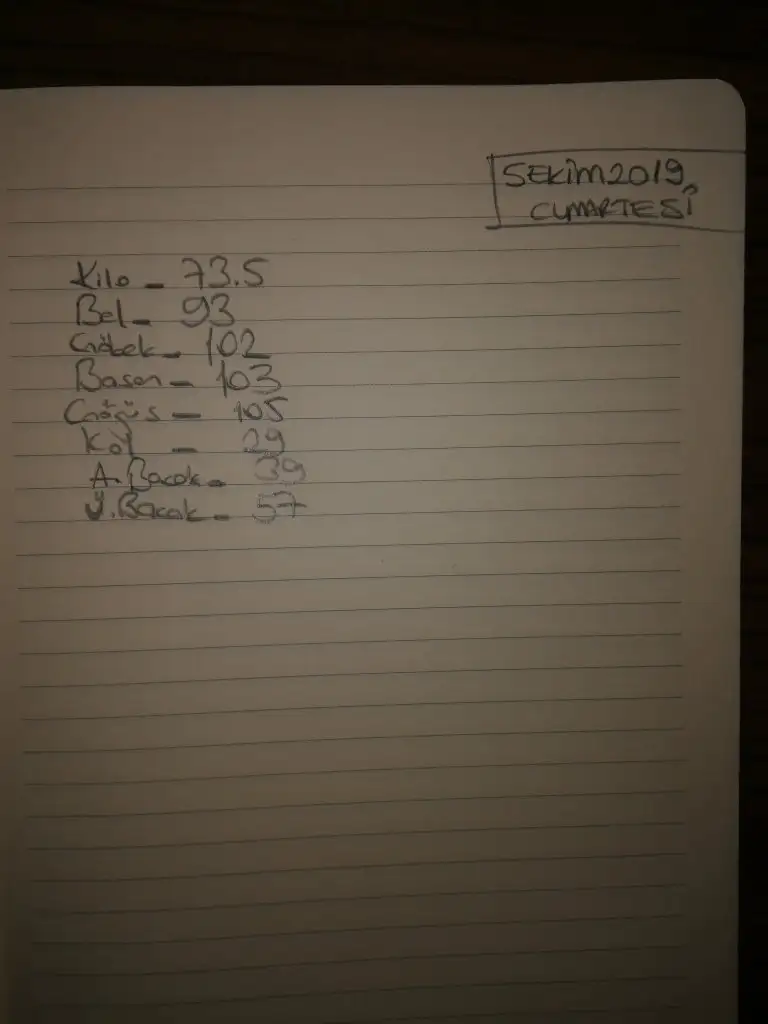 5EKİM2019
CUMARTESİ
Kilo - 73.5
Bel - 93
Göbek - 102
Basen - 103
Göğüs - 105
Kol - 29
A. Bacak - 39
Ü. Bacak - 57